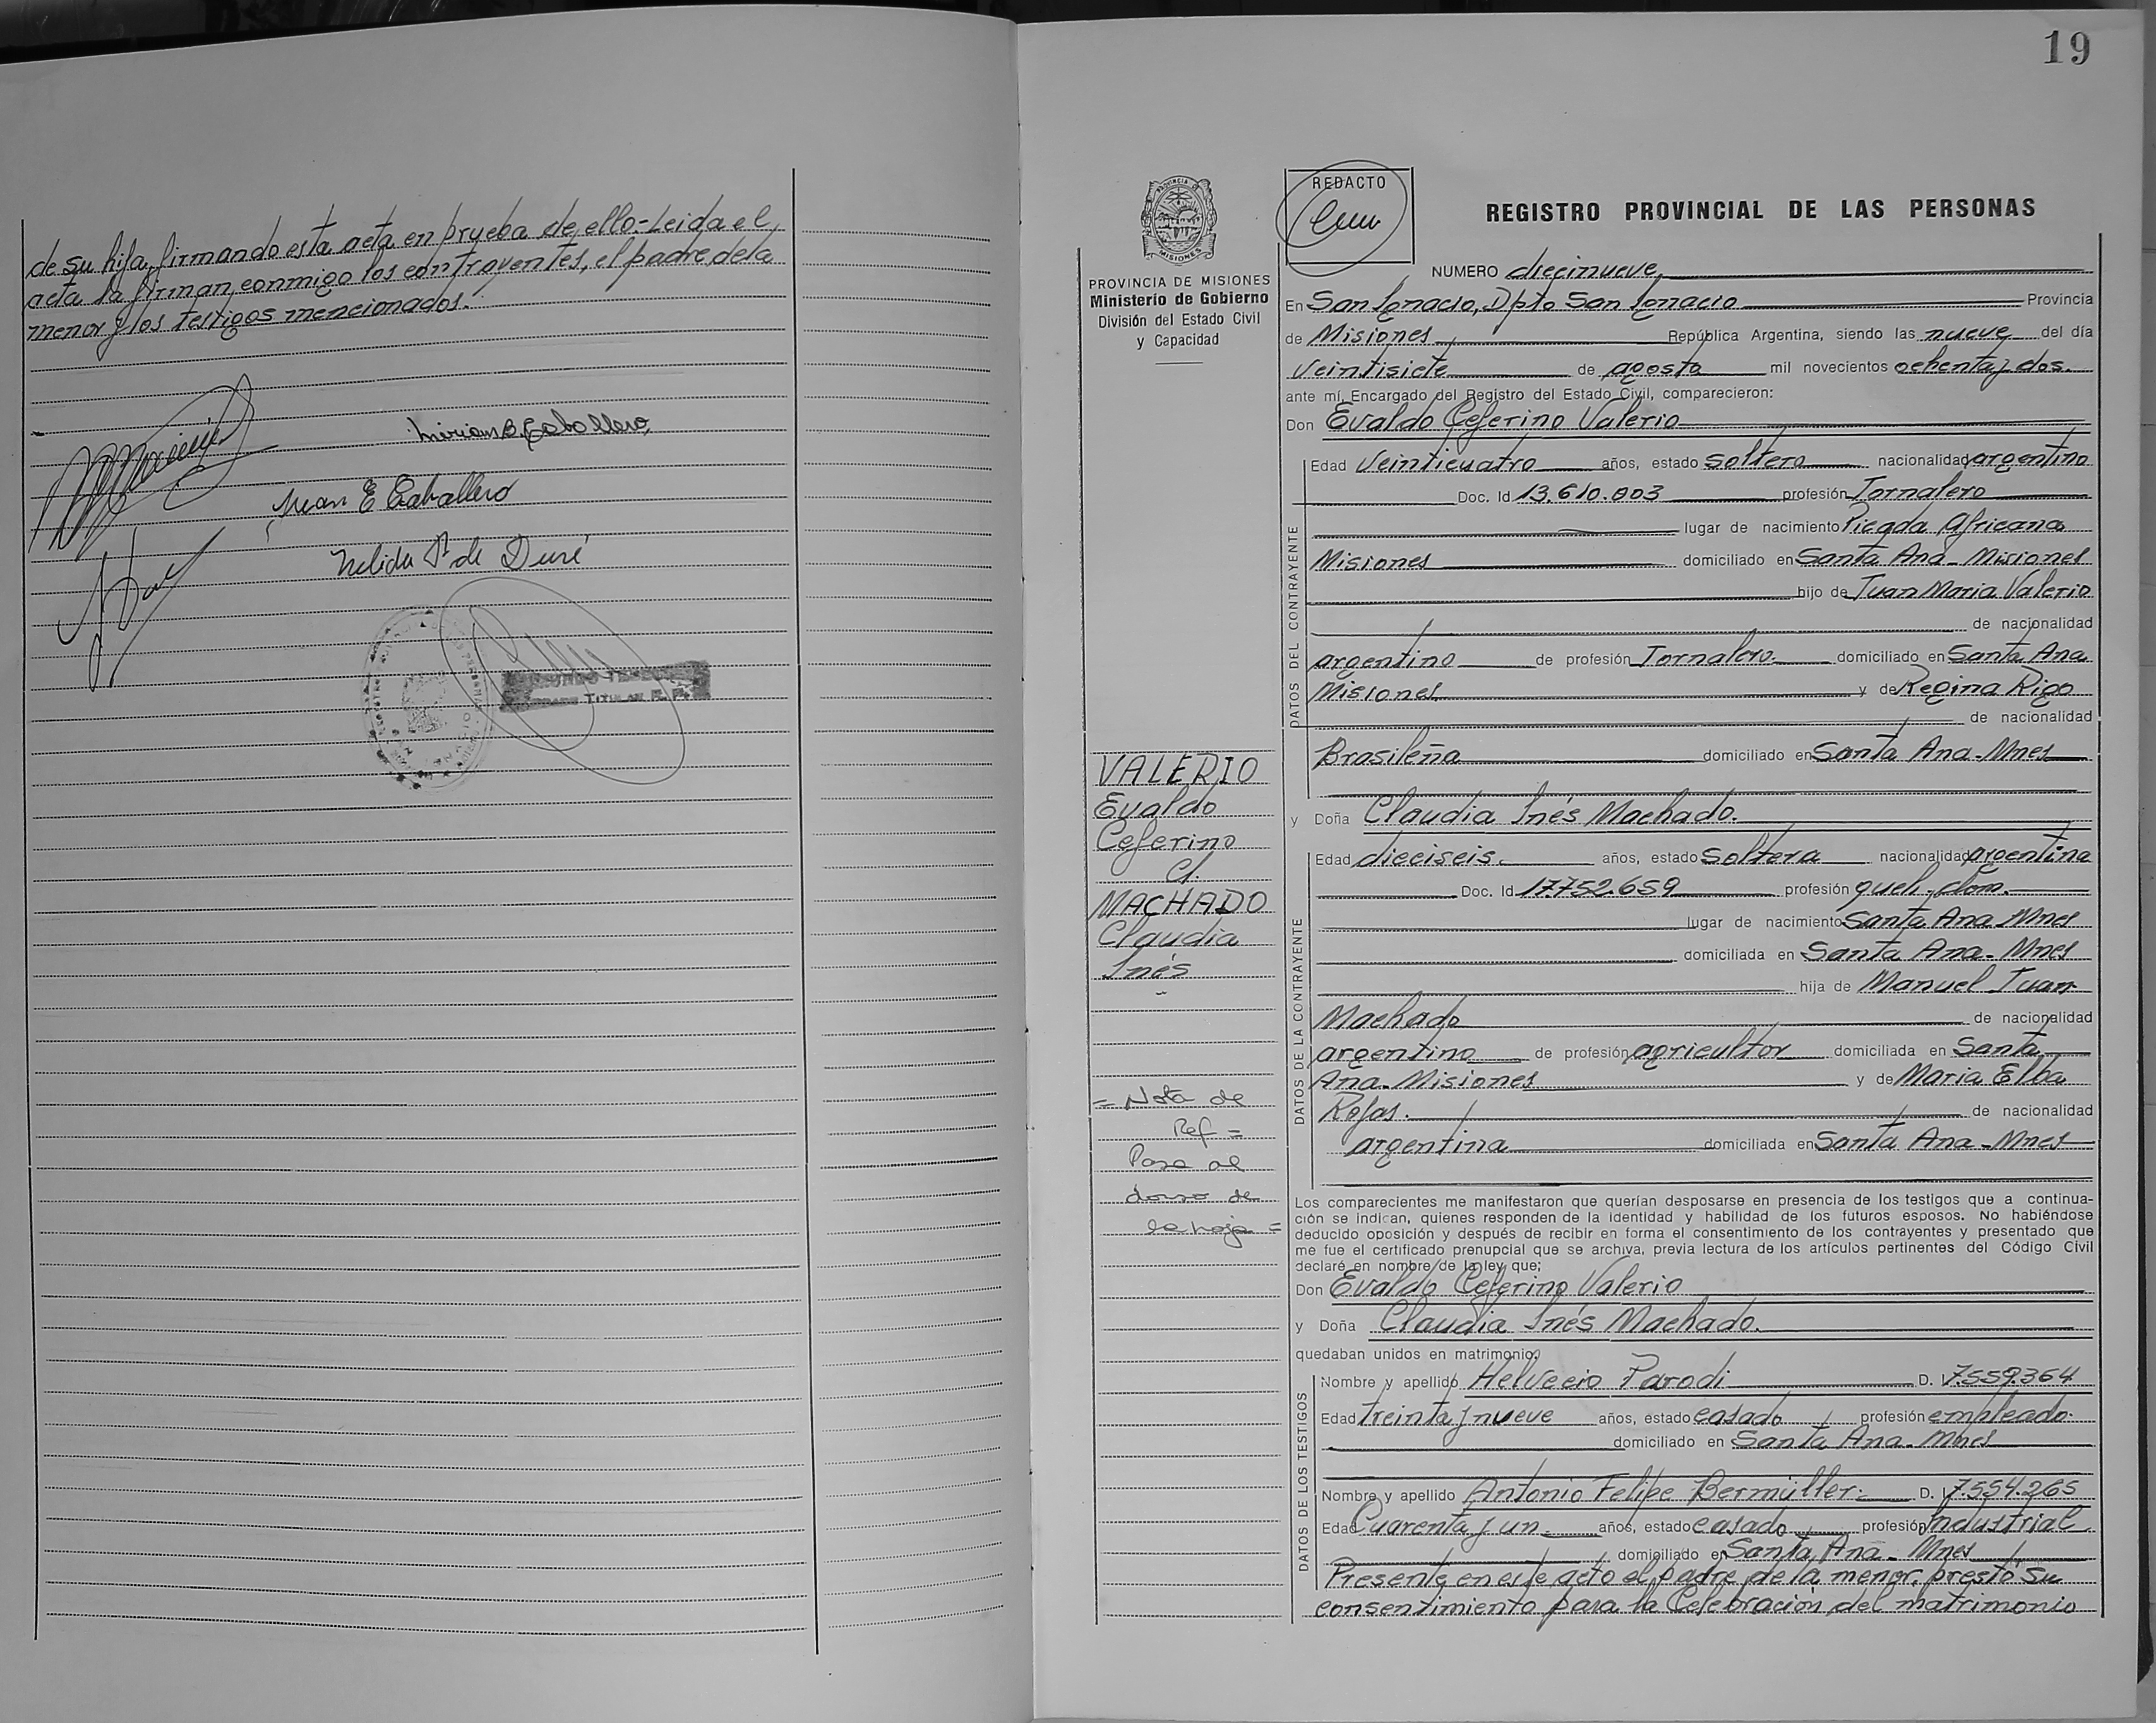 de su hija, firmando esta acta en prueba de ello.- Leida el
acta la firman conmigo los contrayentes, el padre de la
menor y los testigos mencionados.-
Miriam B. Caballero
Juan E Caballero
Nelida P. de Duré
TITULAR
19
PROVINCIA DE MISIONES
Ministerio de Gobierno
División del Estado Civil
y Capacidad
VALERIO
Evaldo
Ceferino
c/.
MACHADO
Claudia
Inés
-
= Nota de
Ref =
Pasa al
dorso de
la hoja =
REDACTO
REGISTRO PROVINCIAL DE LAS PERSONAS
NUMERO diecinueve
En San Ignacio, Dpto San Ignacio Provincia
de Misiones República Argentina, siendo las nueve del día
Veintisiete de agosto mil novecientos ochenta y dos.
ante mí, Encargado del Registro del Estado Civil, comparecieron:
Don Evaldo Ceferino Valerio
DATOS DEL CONTRAYENTE
Edad Veinticuatro años, estado soltero nacionalidad argentino
Doc. Id 13.610.803 profesión Jornalero
lugar de nacimiento Picada Africana
Misiones domiciliado en Santa Ana - Misiones
hijo de Juan Maria Valerio
de nacionalidad
argentino de profesión Jornalero. domiciliado en Santa Ana
Misiones y de Regina Rigo
de nacionalidad
Brasileña domiciliado en Santa Ana - Mnes
y Doña Claudia Inés Machado.
DATOS DE LA CONTRAYENTE
Edad dieciseis. años, estado soltera nacionalidad argentina
Doc. Id 17.752.659 profesión queh. dom.
lugar de nacimiento Santa Ana Mnes
domiciliada en Santa Ana - Mnes
hija de Manuel Juan
Machado de nacionalidad
argentino de profesión agricultor domiciliada en Santa
Ana - Misiones y de Maria Elba
Rojas. de nacionalidad
argentina domiciliada en Santa Ana - Mnes
Los comparecientes me manifestaron que querían desposarse en presencia de los testigos que a continua-
ción se indican, quienes responden de la identidad y habilidad de los futuros esposos. No habiéndose
deducido oposición y después de recibir en forma el consentimiento de los contrayentes y presentado que
me fue el certificado prenupcial que se archiva, previa lectura de los artículos pertinentes del Código Civil
declaré en nombre de la ley que;
Don Evaldo Ceferino Valerio
y Doña Claudia Inés Machado.
quedaban unidos en matrimonio.
DATOS DE LOS TESTIGOS
Nombre y apellido Helvecio Parodi D. I 7.559.364
Edad treinta y nueve años, estado casado profesión empleado.
domiciliado en Santa Ana - Mnes
Nombre y apellido Antonio Felipe Bermüller. D. I 7.554.265
Edad Cuarenta y un años, estado casado profesión Industrial
domiciliado en Santa Ana - Mnes
Presente en este acto el padre de la menor, prestó su
consentimiento para la Celebración del matrimonio